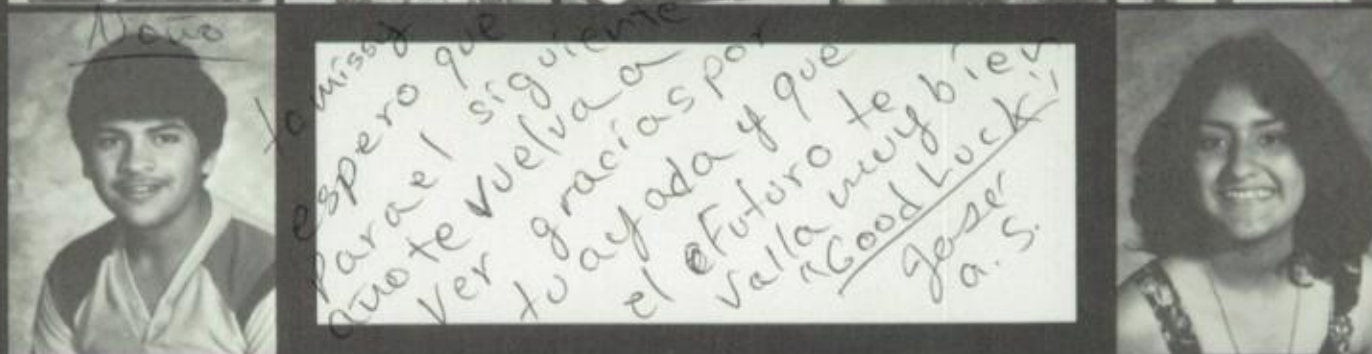 to missy
espero que
para el siguiente
año te vuelva a
ver gracias por
tu ayada y que
el futuro te
valla muy bien
"Good Luck"
a. S.